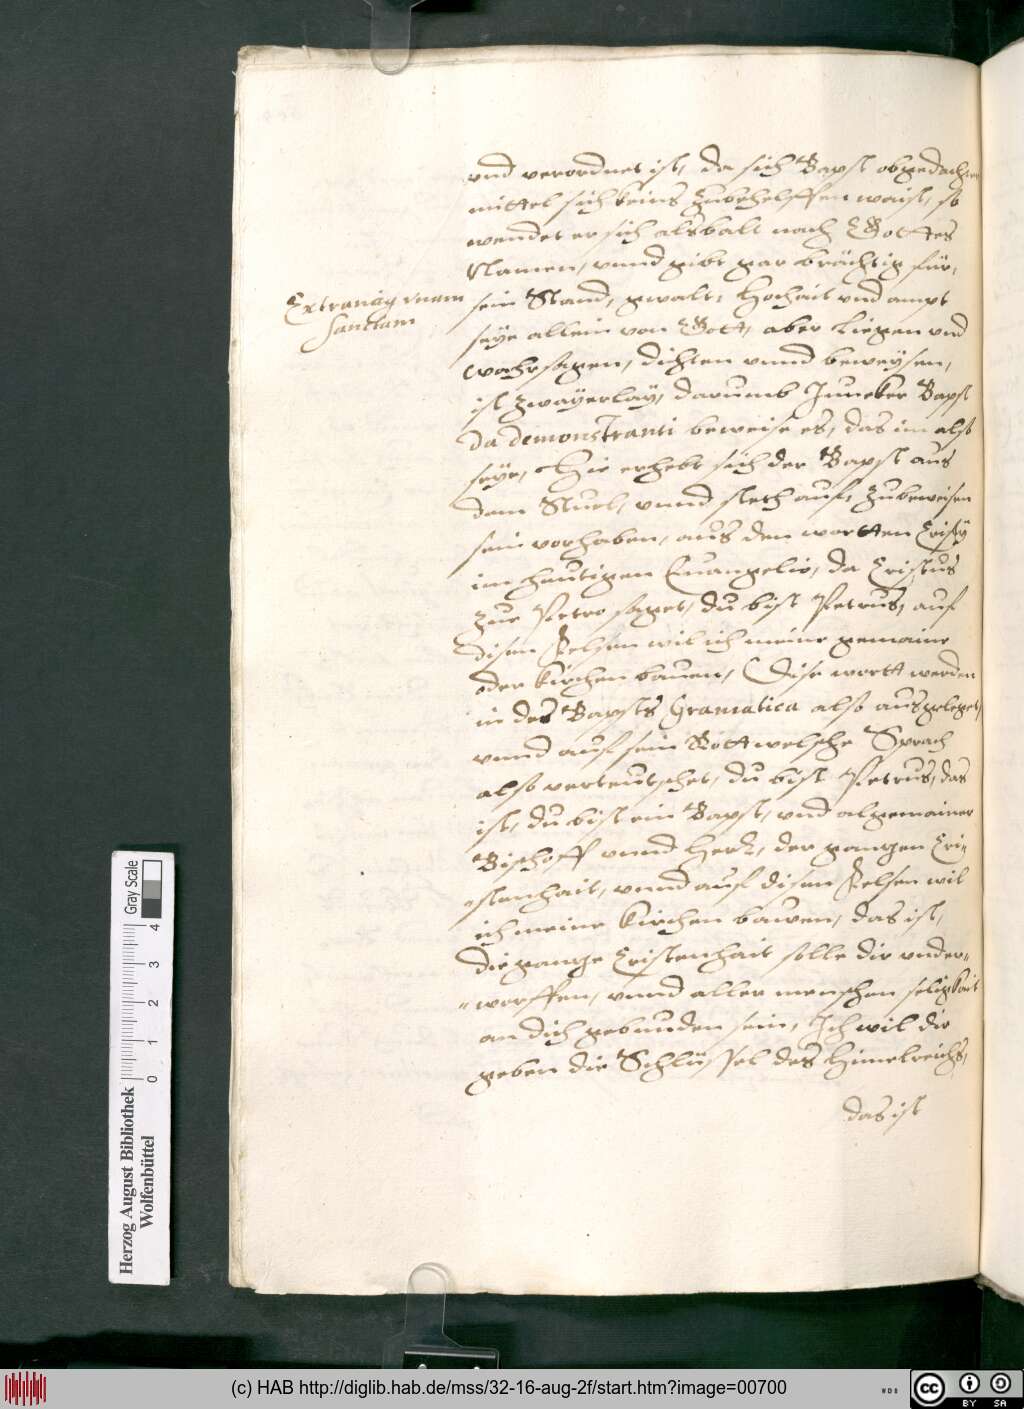 vnd verordnet ist, da sich Bapst obgedachter
mittel sich keins zubehelffen waist, so
wendet er sich alsbalt nach Gottes
Namen, vnnd gibt gar brächtig für,
Extrauag vnam
sanctam
sein Stand, gwalt, Hochait vnd ampt
seye allein von Gott, aber Liegen vnd
wahrsagen, dichten vnnd beweysen,
ist zwayerlay, darumb Juncker Bapst
da demonstranti beweise es, das im also
seye, Hie erhebt sich der Bapst aus
dem Stuel, vnnd steth auf, zubeweisen
sein vorhaben, aus den wortten Cristy
im heutigen Euangelio, da Cristus
zue Petro saget, du bist Petrus, auf
disen Felsen wil ich meine gemaine
oder Kirchen bauen, Dise wortt werden
in des Bapsts Gramatica also ausgeleget,
vnnd auf sein Rottwelsche Sprach
also verteutschet, du bist Petrus, das
ist, du bist ein Bapst, vnd algemainer
Bischoff vnnd Herr, der gantzen Cri-
stenhait, vnnd auf disen Felsen wil
ich meine Kirchen bawen, das ist,
die gantze Cristenhait solle dir vnder-
worffen, vnnd aller menschen seligkait
an dich gebunden sein, Ich wil dir
geben die Schlüssel des Himelreichs,
das ist
Gray Scale
0 1 2 3 4
Herzog August Bibliothek
Wolfenbüttel
(c) HAB http://diglib.hab.de/mss/32-16-aug-2f/start.htm?image=00700
WDB
cc BY SA